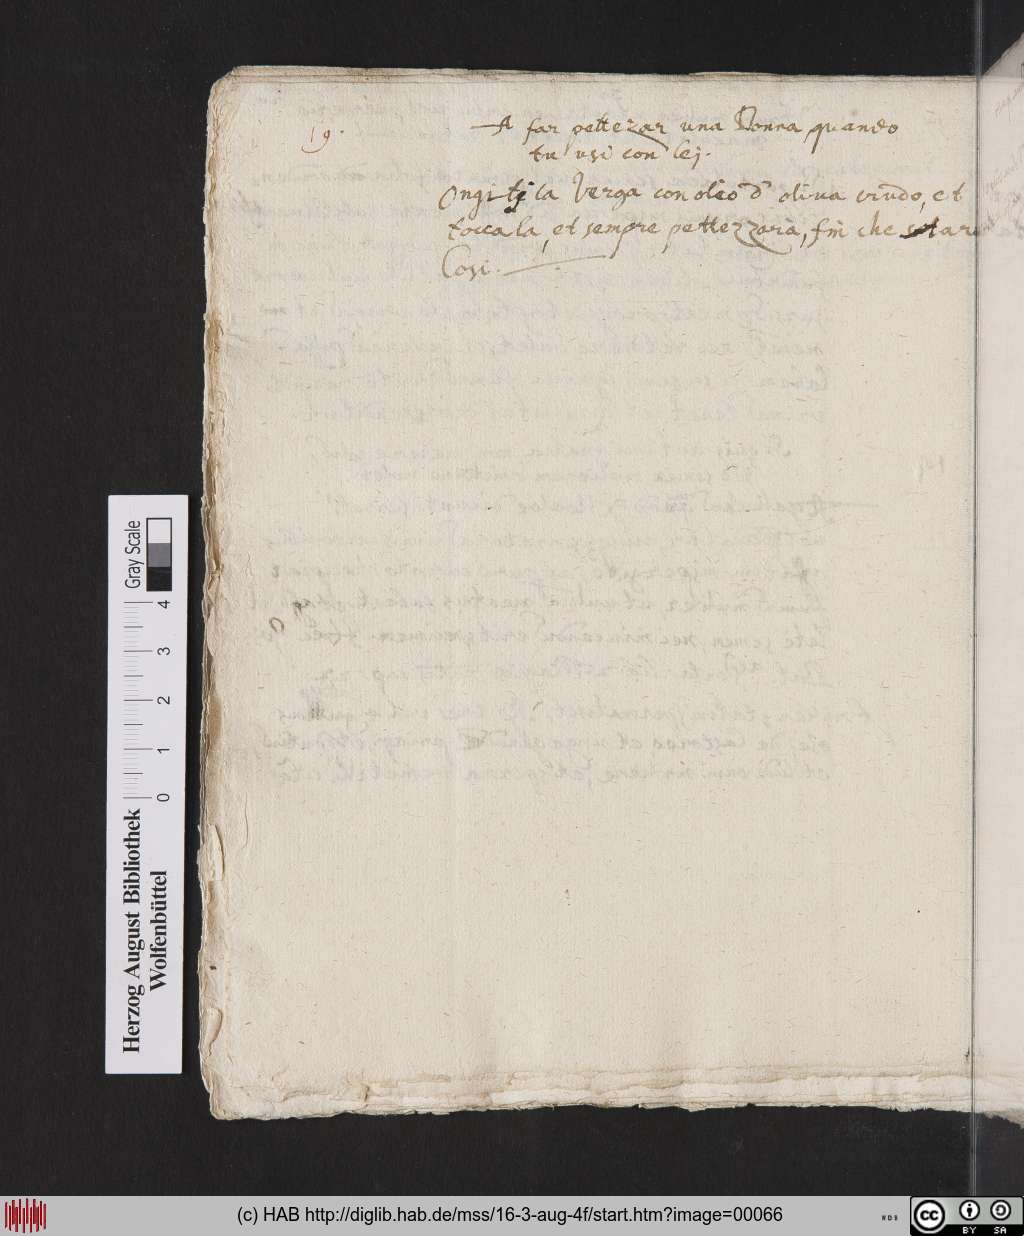 19.
A far pettezar una Donna quando
tu usi con lej.
Ongi tj la Verga con oleo d' oliva crudo, et
toccala, et sempre pettezzara, fin che star
Cosi.
Gray Scale
0 1 2 3 4
Herzog August Bibliothek
Wolfenbüttel
(c) HAB http://diglib.hab.de/mss/16-3-aug-4f/start.htm?image=00066
WDB
cc BY SA